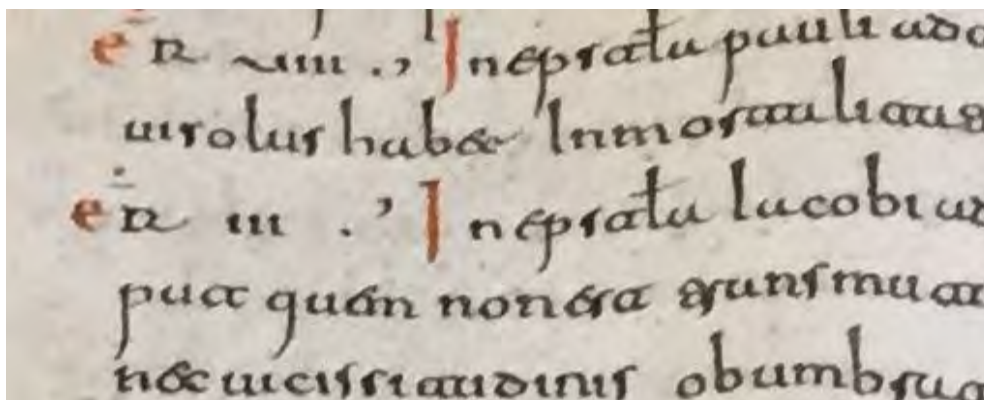 eR uiiii .,, In epistla pauli ad
ui solus habet Inmortalita
eR iii .,, In epistla Iacobi
pud quem non est transmuta
nec uicissitudinis obumbra